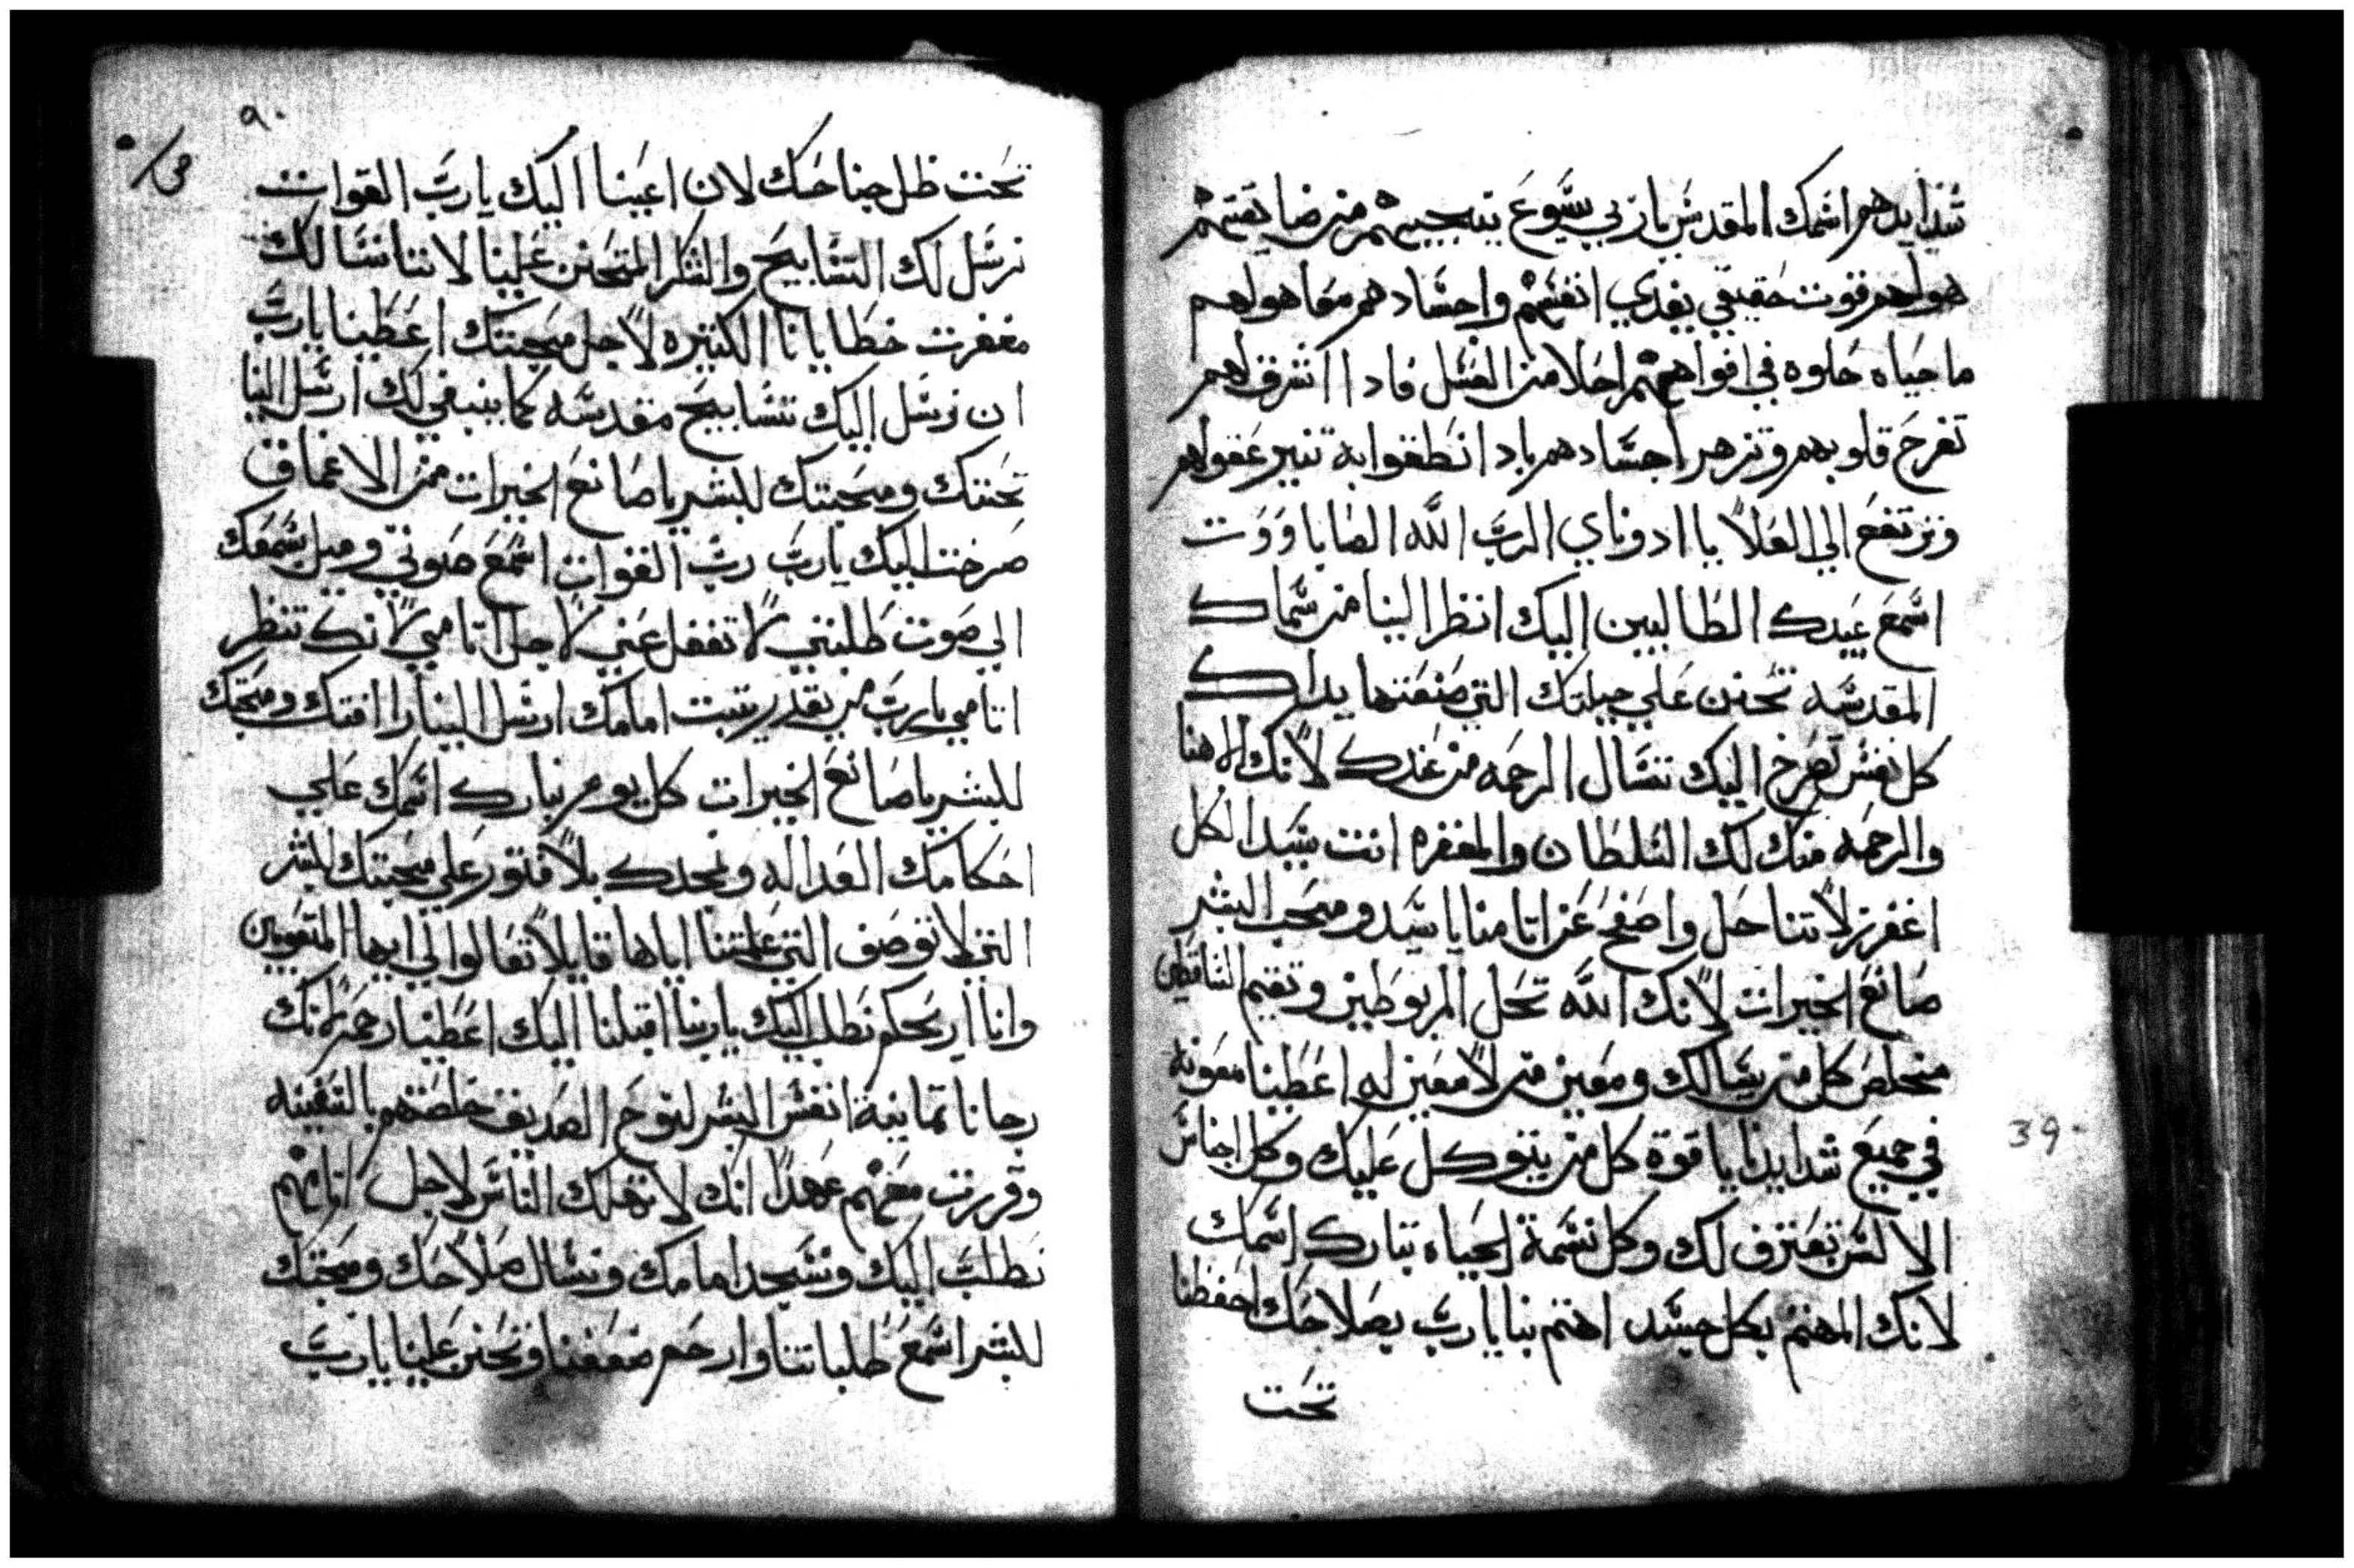 شدايدهم اسمك المقدس ياربي يسوع ينجيهم من ضايقتهم
هو لهم قوت حقيقي يغدي انفسهم واجسادهم معا هو لهم
ما حياه حلوه في افواههم احلا من العسل فادا اشرق لهم
تفرح قلوبهم وتزهر اجسادهم باد انطقوا به تنير عقولهم
وترتفع الي العلا يا ادوناي الرب الله الصاباووت
اسمع عبيدك الطالبين اليك انظر الينا من سماك
المقدسه تحنن علي جبلتك التي صنعتها يداك
كل نفس تصرخ اليك تسال الرحمه من عندك لانك الاهنا
والرحمه منك لك السلطان والمغفره انت سيد الكل
اغفر زلاتنا حل واصفح عن اتامنا يا سيد ومحب البشر
صانع الخيرات لانك الله تحل المربوطين وتقيم الساقطين
مخلص كل من يسالك ومعين من لا معين له اعطينا معونه
في جميع شدايدنا يا قوة كل من يتوكل عليك وكل اجناس
الالسن تعترف لك وكل نسمة الحياه تبارك اسمك
لانك المهتم بكل جسد اهتم بنا يارب بصلاحك احفظنا
تحت
39
٩٠
تحت ظل جناحك لان اعيننا اليك يارب القوات
نرسل لك التسابيح والشكر المتحنن علينا لاننا نسالك
مغفرت خطايانا الكتيره لاجل محبتك اعطينا يارب
ان نرسل اليك تسابيح مقدسه كما ينبغي لك ارسل الينا
تحننك ومحبتك للبشر يا صانع الخيرات من الاعماق
صرخت اليك يارب رب القوات اسمع صوتي وميل سمعك
الي صوت طلبتي لا تغفل عني لاجل اتامي لانك تنظر
اتامي يارب من يقدر يتبت امامك ارسل الينا راافتك ومحبتك
للبشر يا صانع الخيرات كل يوم نبارك اسمك علي
احكامك العداله ونمجدك بلا فتور علي محبتك للبشر
التي لا توصف التي علمتنا اياها قايلا تعالوا الي ايها المتعوبين
وانا اريحكم نطلب اليك ياربنا اقبلنا اليك اعطينا رحمه لانك
رجانا تمانية انفس البشر لنوح الصديق خلصتهم بالسفينه
وقررت معهم عهدا انك لا تهلك الناس لاجل اتامهم
نطلب اليك ونسجد امامك ونسال صلاحك ومحبتك
للبشر اسمع طلباتنا وارحم ضعفنا وتحنن علينا يارب